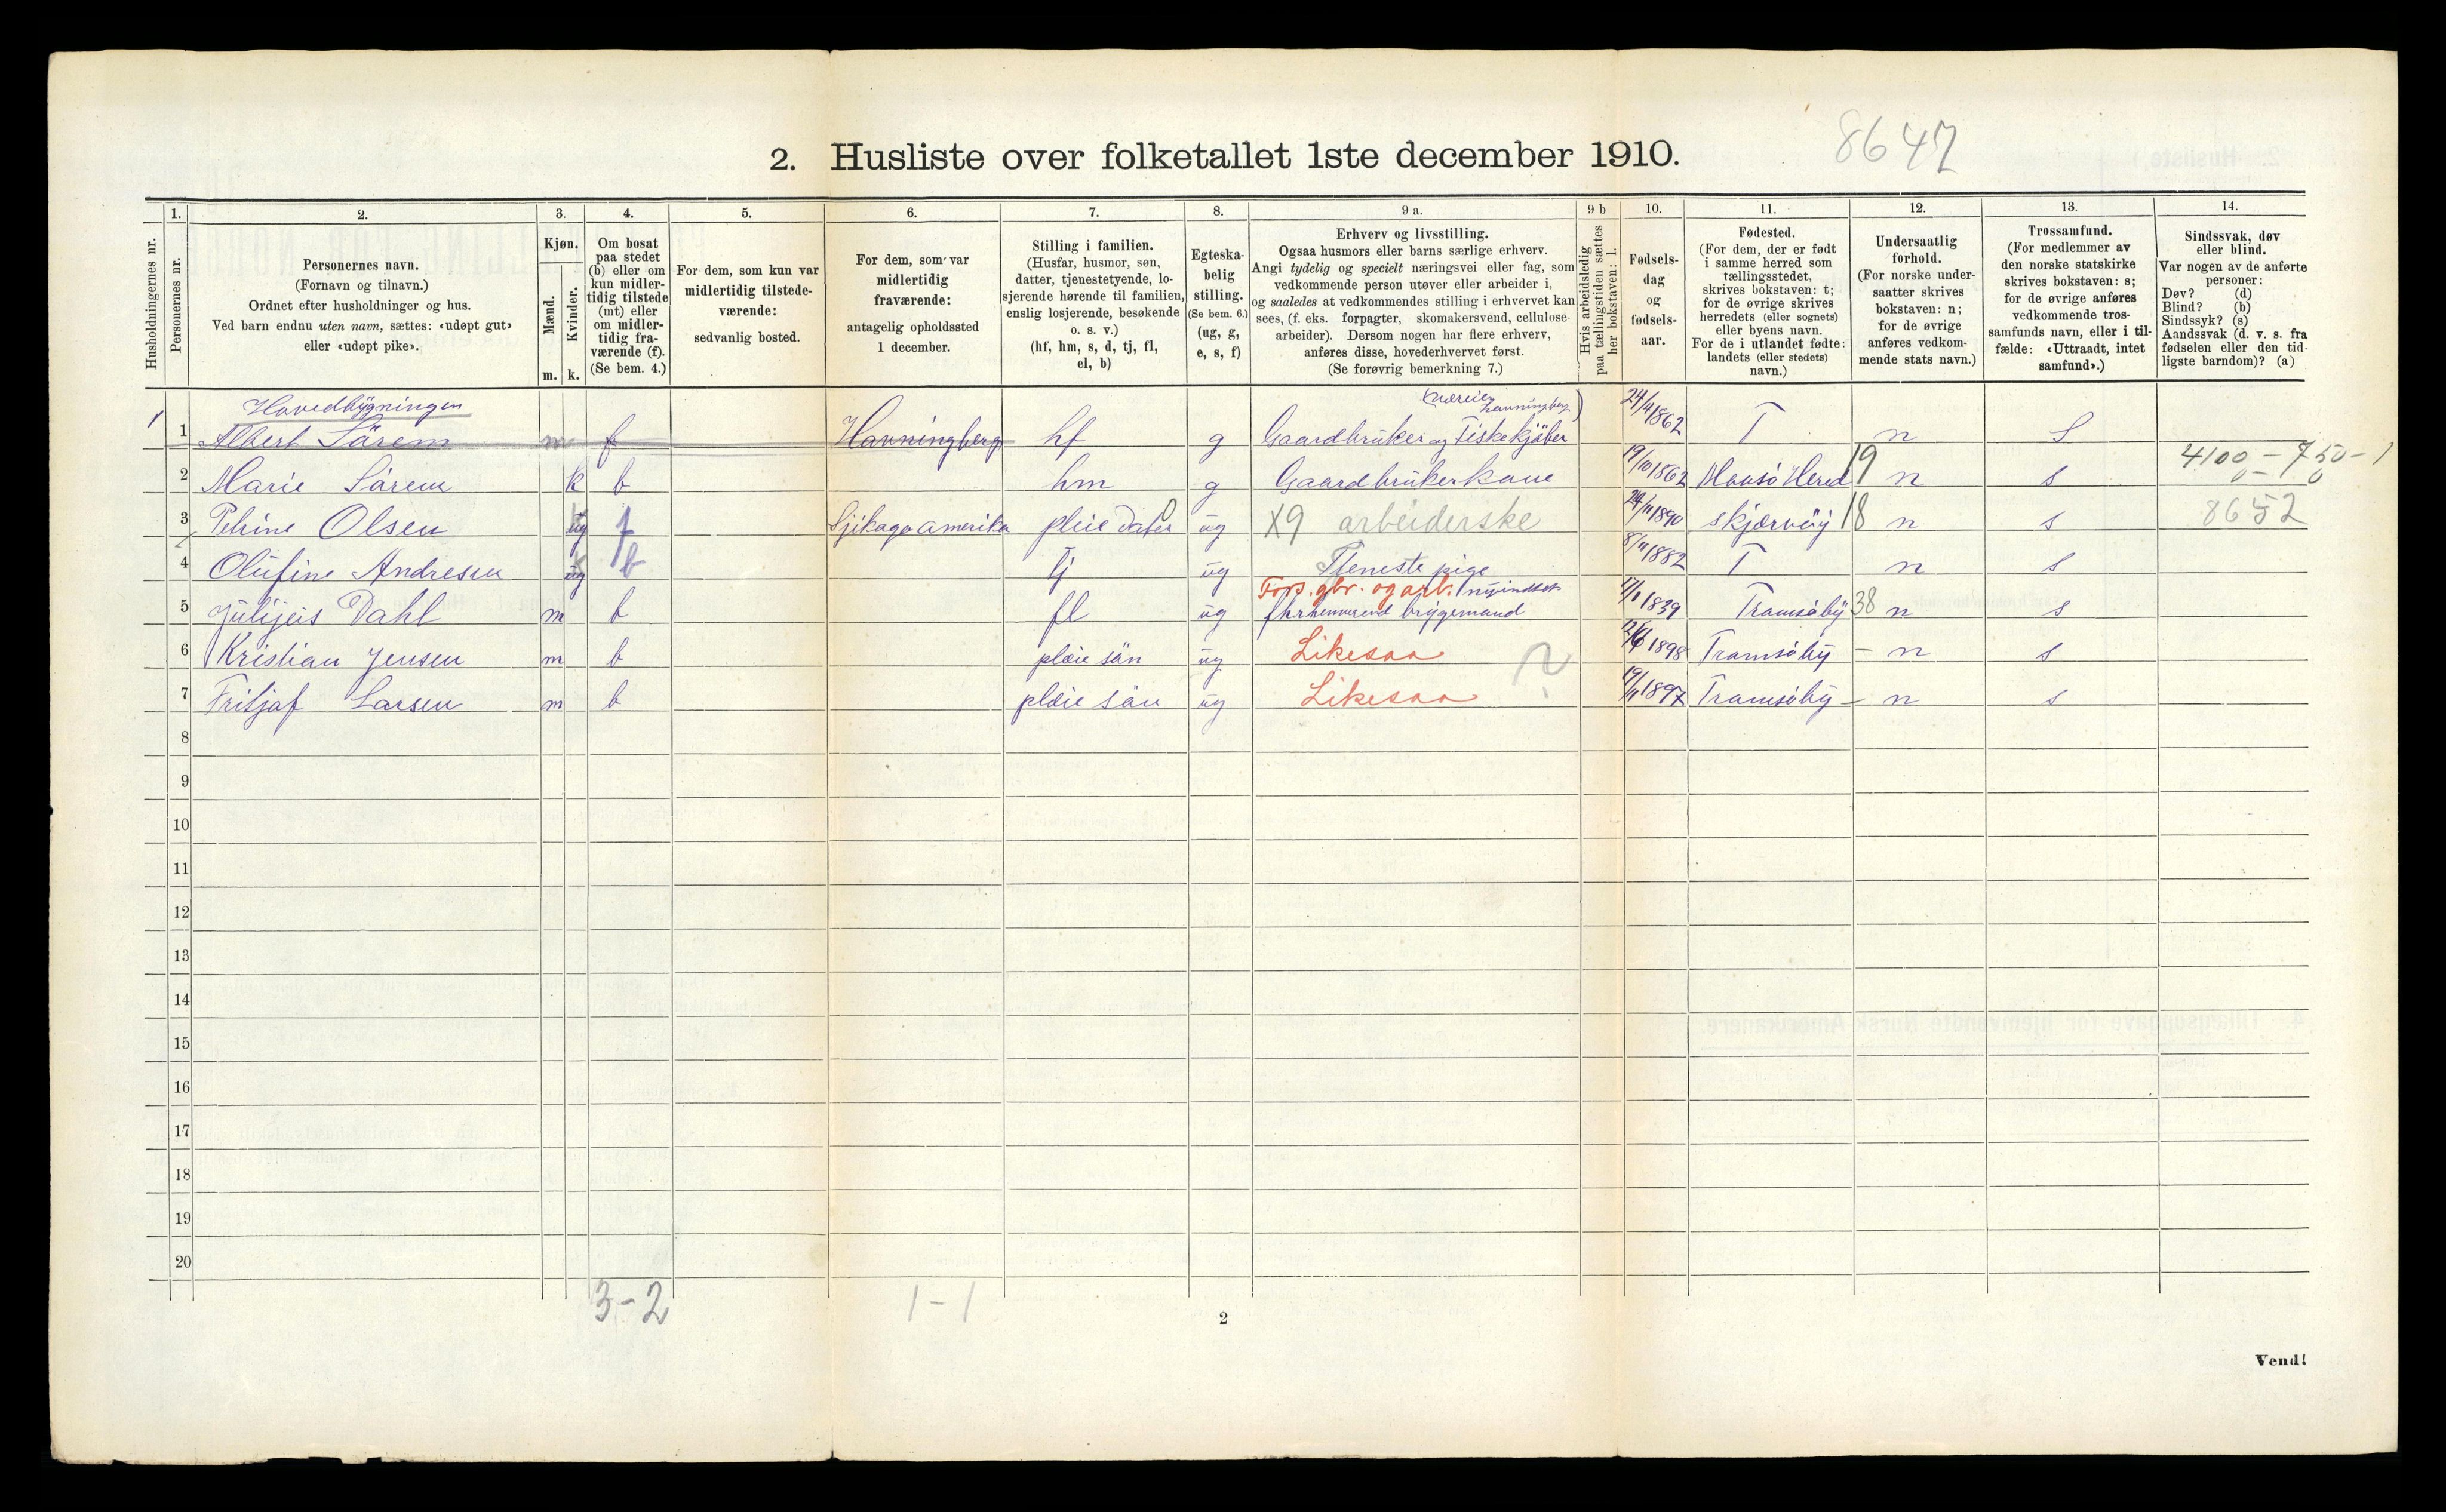 8647
2. Husliste over folketallet 1ste december 1910.
Husholdningernes nr.
1.
Personernes nr.
2.
Personernes navn.
(Fornavn og tilnavn.)
Ordnet efter husholdninger og hus.
Ved barn endnu uten navn, sættes: «udøpt gut»
eller «udøpt pike».
3.
Kjøn.
Mænd.
Kvinder.
m. k.
4.
Om bosat
paa stedet
(b) eller om
kun midler-
tidig tilstede
(mt) eller
om midler-
tidig fra-
værende (f).
(Se bem. 4.)
5.
For dem, som kun var
midlertidig tilstede-
værende:
sedvanlig bosted.
6.
For dem, som var
midlertidig
fraværende:
antagelig opholdssted
1 december.
7.
Stilling i familien.
(Husfar, husmor, søn,
datter, tjenestetyende, lo-
sjerende hørende til familien,
enslig losjerende, besøkende
o. s. v.)
(hf, hm, s, d, tj, fl,
el, b)
8.
Egteska-
belig
stilling.
(Se bem. 6.)
(ug, g,
e, s, f)
9 a.
Erhverv og livsstilling.
Ogsaa husmors eller barns særlige erhverv.
Angi tydelig og specielt næringsvei eller fag, som
vedkommende person utøver eller arbeider i,
og saaledes at vedkommendes stilling i erhvervet kan
sees, (f. eks. forpagter, skomakersvend, cellulose-
arbeider). Dersom nogen har flere erhverv,
anføres disse, hovederhvervet først.
(Se forøvrig bemerkning 7.)
9 b
Hvis arbeidsledig
paa tællingstiden sættes
her bokstaven: l.
10.
Fødsels-
dag
og
fødsels-
aar.
11.
Fødested.
(For dem, der er født
i samme herred som
tællingsstedet,
skrives bokstaven: t;
for de øvrige skrives
herredets (eller sognets)
eller byens navn.
For de i utlandet fødte:
landets (eller stedets)
navn.)
12.
Undersaatlig
forhold.
(For norske under-
saatter skrives
bokstaven: n;
for de øvrige
anføres vedkom-
mende stats navn.)
13.
Trossamfund.
(For medlemmer av
den norske statskirke
skrives bokstaven: s;
for de øvrige anføres
vedkommende tros-
samfunds navn, eller i til-
fælde: «Uttraadt, intet
samfund».)
14.
Sindssvak, døv
eller blind.
Var nogen av de anførte
personer:
Døv? (d)
Blind? (b)
Sindssyk? (s)
Aandssvak (d. v. s. fra
fødselen eller den tid-
ligste barndom)? (a)
Hovedbygningen
1 1 Albert Särem m f Havningberg hf g Gaardbruker og Fiskekjøber 24/4 1862 T n S
2 Marie Särem k b hm g Gaardbrukerkone 19/10 1862 Maasö Hered 19 n s 4100 - 750 - 1
3 Petrine Olsen ug f Sjikago amerika pleie dater ug X9 arbeiderske 24/11 1890 skjærvöy 18 n s 8652
4 Olufine Andresen k b tj ug Tjeneste pige 8/11 1882 T n s
Fors. gbr. og arb.
5 Dahl m b fl ug bryggemand 1839 Tromsöby 38 n s
6 Kristian Jensen m b pläie sän ug Likesaa ? 1898 Tromsöby - n s
7 Fritjof Larsen m b pläie sän ug Likesaa 19/11 1897 Tromsöby - n s
8
9
10
11
12
13
14
15
16
17
18
19
20
3 - 2 1 - 1
2
Vend!